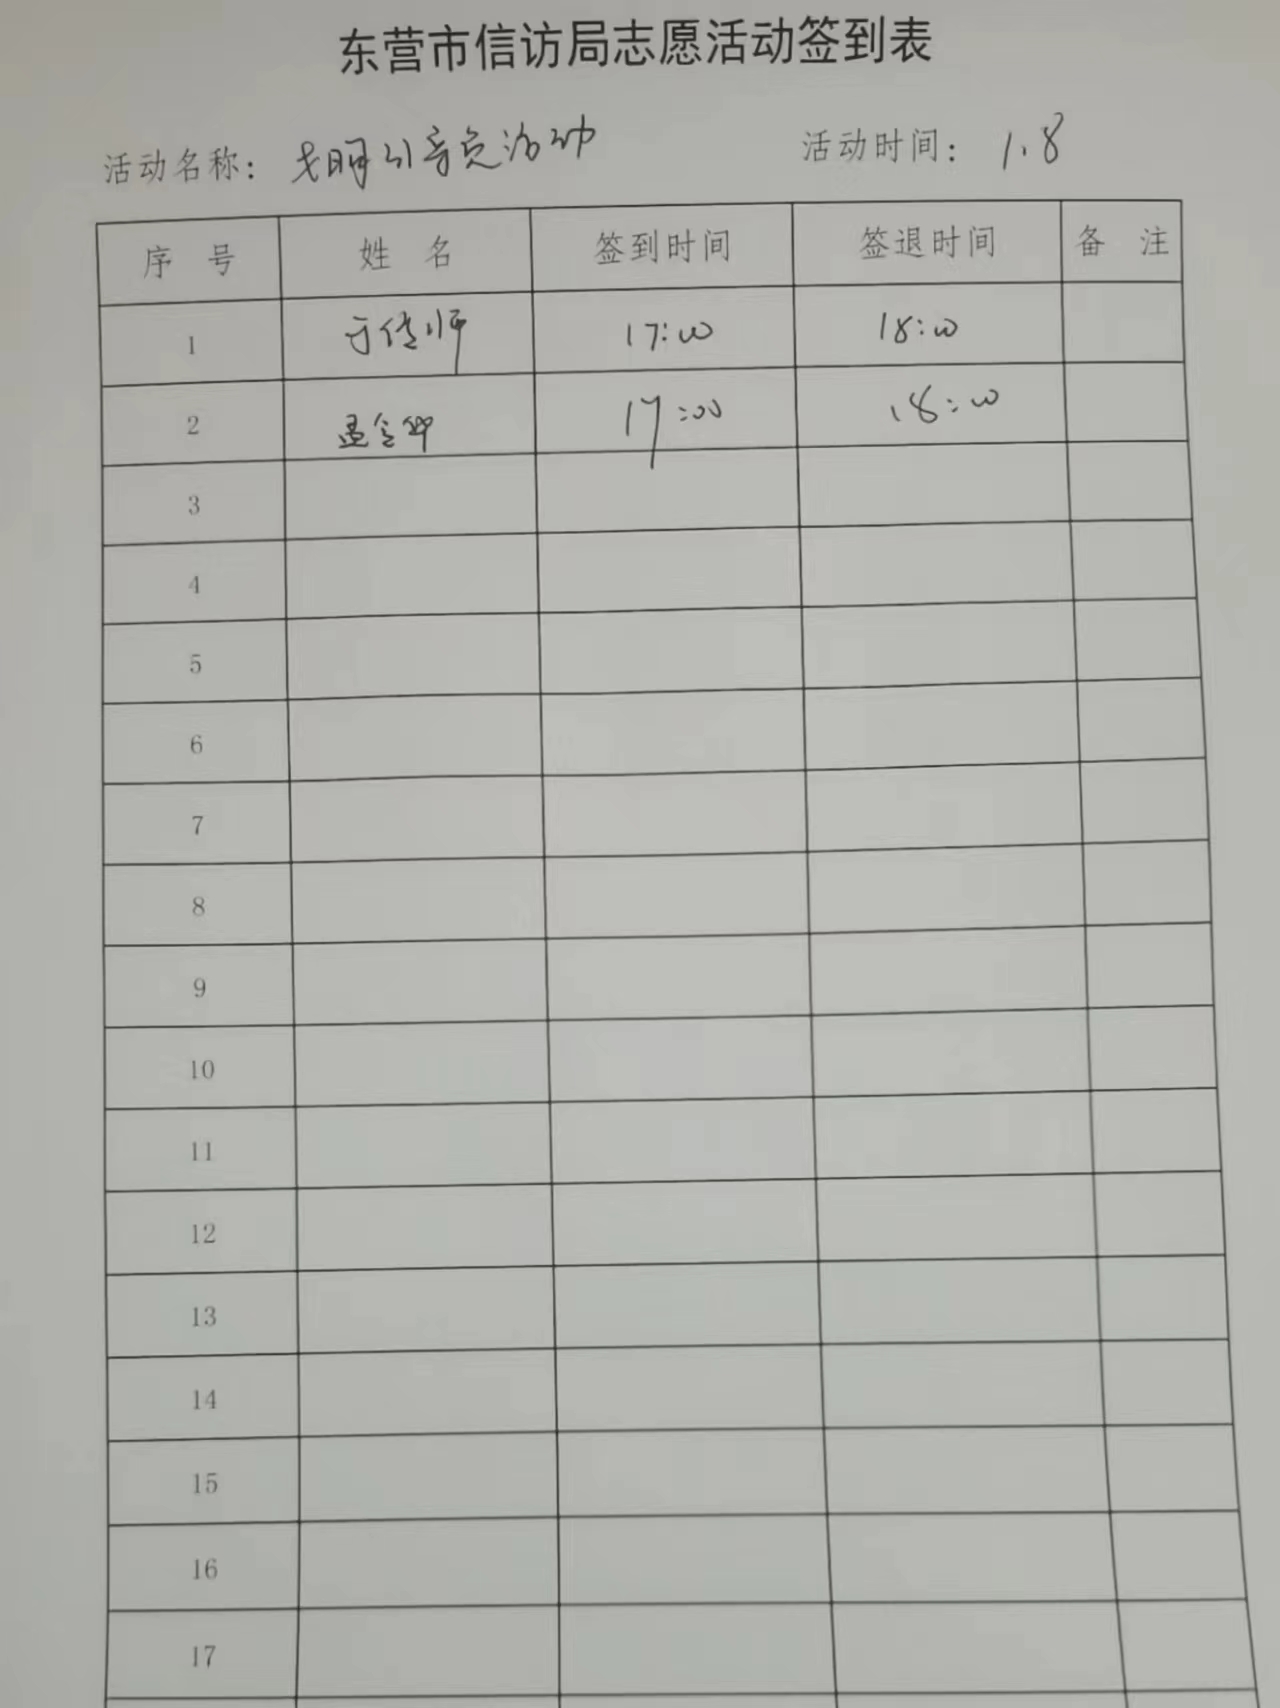 东营市信访局志愿活动签到表
活动名称：文明引导员活动 活动时间：1.8
序号 姓名 签到时间 签退时间 备注
1 于传师 17:00 18:00
2 孟令华 17:00 18:00
3
4
5
6
7
8
9
10
11
12
13
14
15
16
17